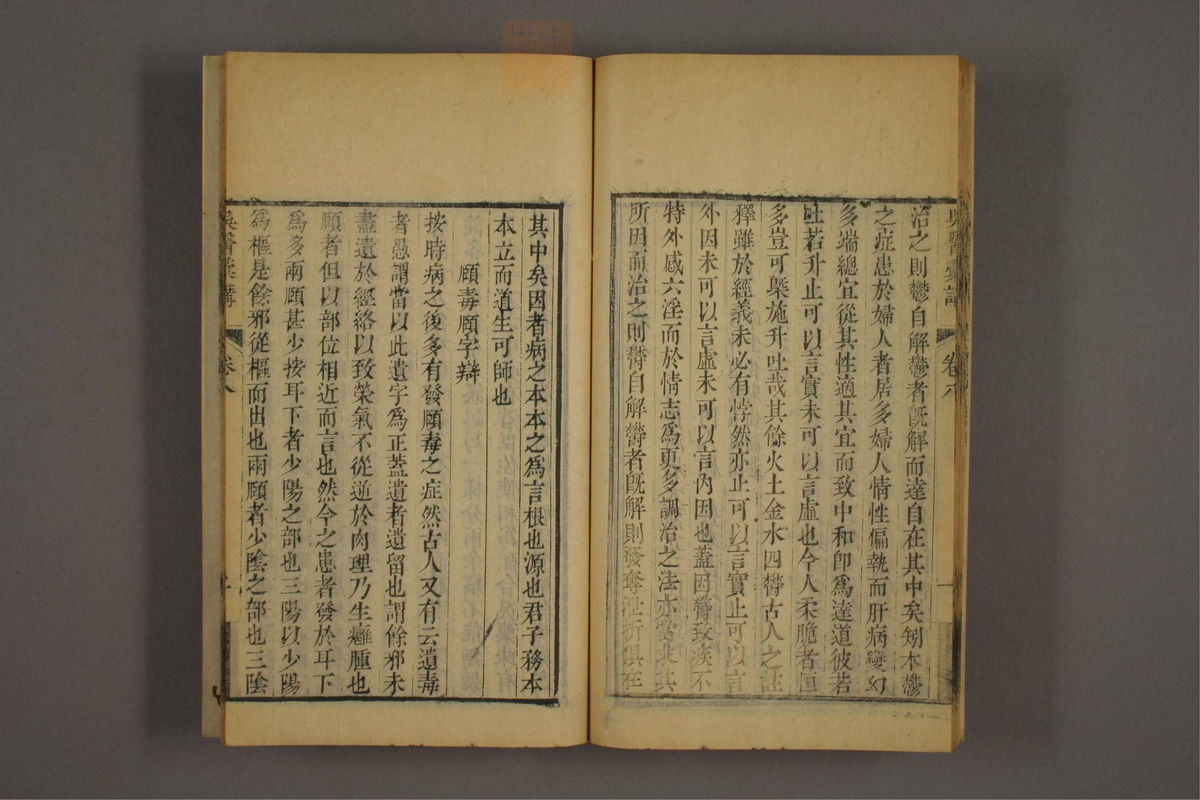 治之則鬱自解鬱者旣解而達自在其中矣矧木鬱
之症患於婦人者居多婦人情性偏執而肝病變幻
多端總宜從其性適其宜而致中和卽爲達道彼若
吐若升止可以言實未可以言虛也今人柔脆者恒
多豈可槩施升吐哉其餘火土金水四鬱古人之註
釋雖於經義未必有悖然亦止可以言實止可以言
外因未可以言虛未可以言內因也蓋因鬱致疾不
特外感六淫而於情志爲更多調治之法亦當求其
所因而治之則鬱自解鬱者旣解則發奪泄折俱在
吳醫彙講
卷八
其中矣因者病之本本之爲言根也源也君子務本
本立而道生可師也
頤毒頤字辯
按時病之後多有發頤毒之症然古人又有云遺毒
者愚謂當以此遺字爲正蓋遺者遺留也謂餘邪未
盡遺於經絡以致榮氣不從逆於肉理乃生癰腫也
頤者但以部位相近而言也然今之患者發於耳下
爲多兩頤甚少按耳下者少陽之部也三陽以少陽
爲樞是餘邪從樞而出也兩頤者少陰之部也三陰
吳醫彙講
卷八